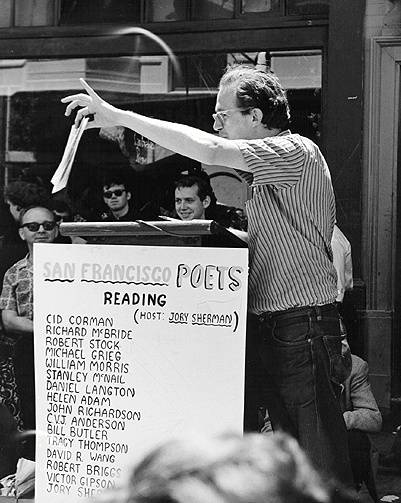 SAN FRANCISCO POETS
READING
(HOST: JORY SHERMAN)
CID CORMAN
RICHARD McBRIDE
ROBERT STOCK
MICHAEL GRIEG
WILLIAM MORRIS
STANLEY McNAIL
DANIEL LANGTON
HELEN ADAM
JOHN RICHARDSON
C.V.J. ANDERSON
BILL BUTLER
TRACY THOMPSON
DAVID R. WANG
ROBERT BRIGGS
VICTOR GIPSON
JORY